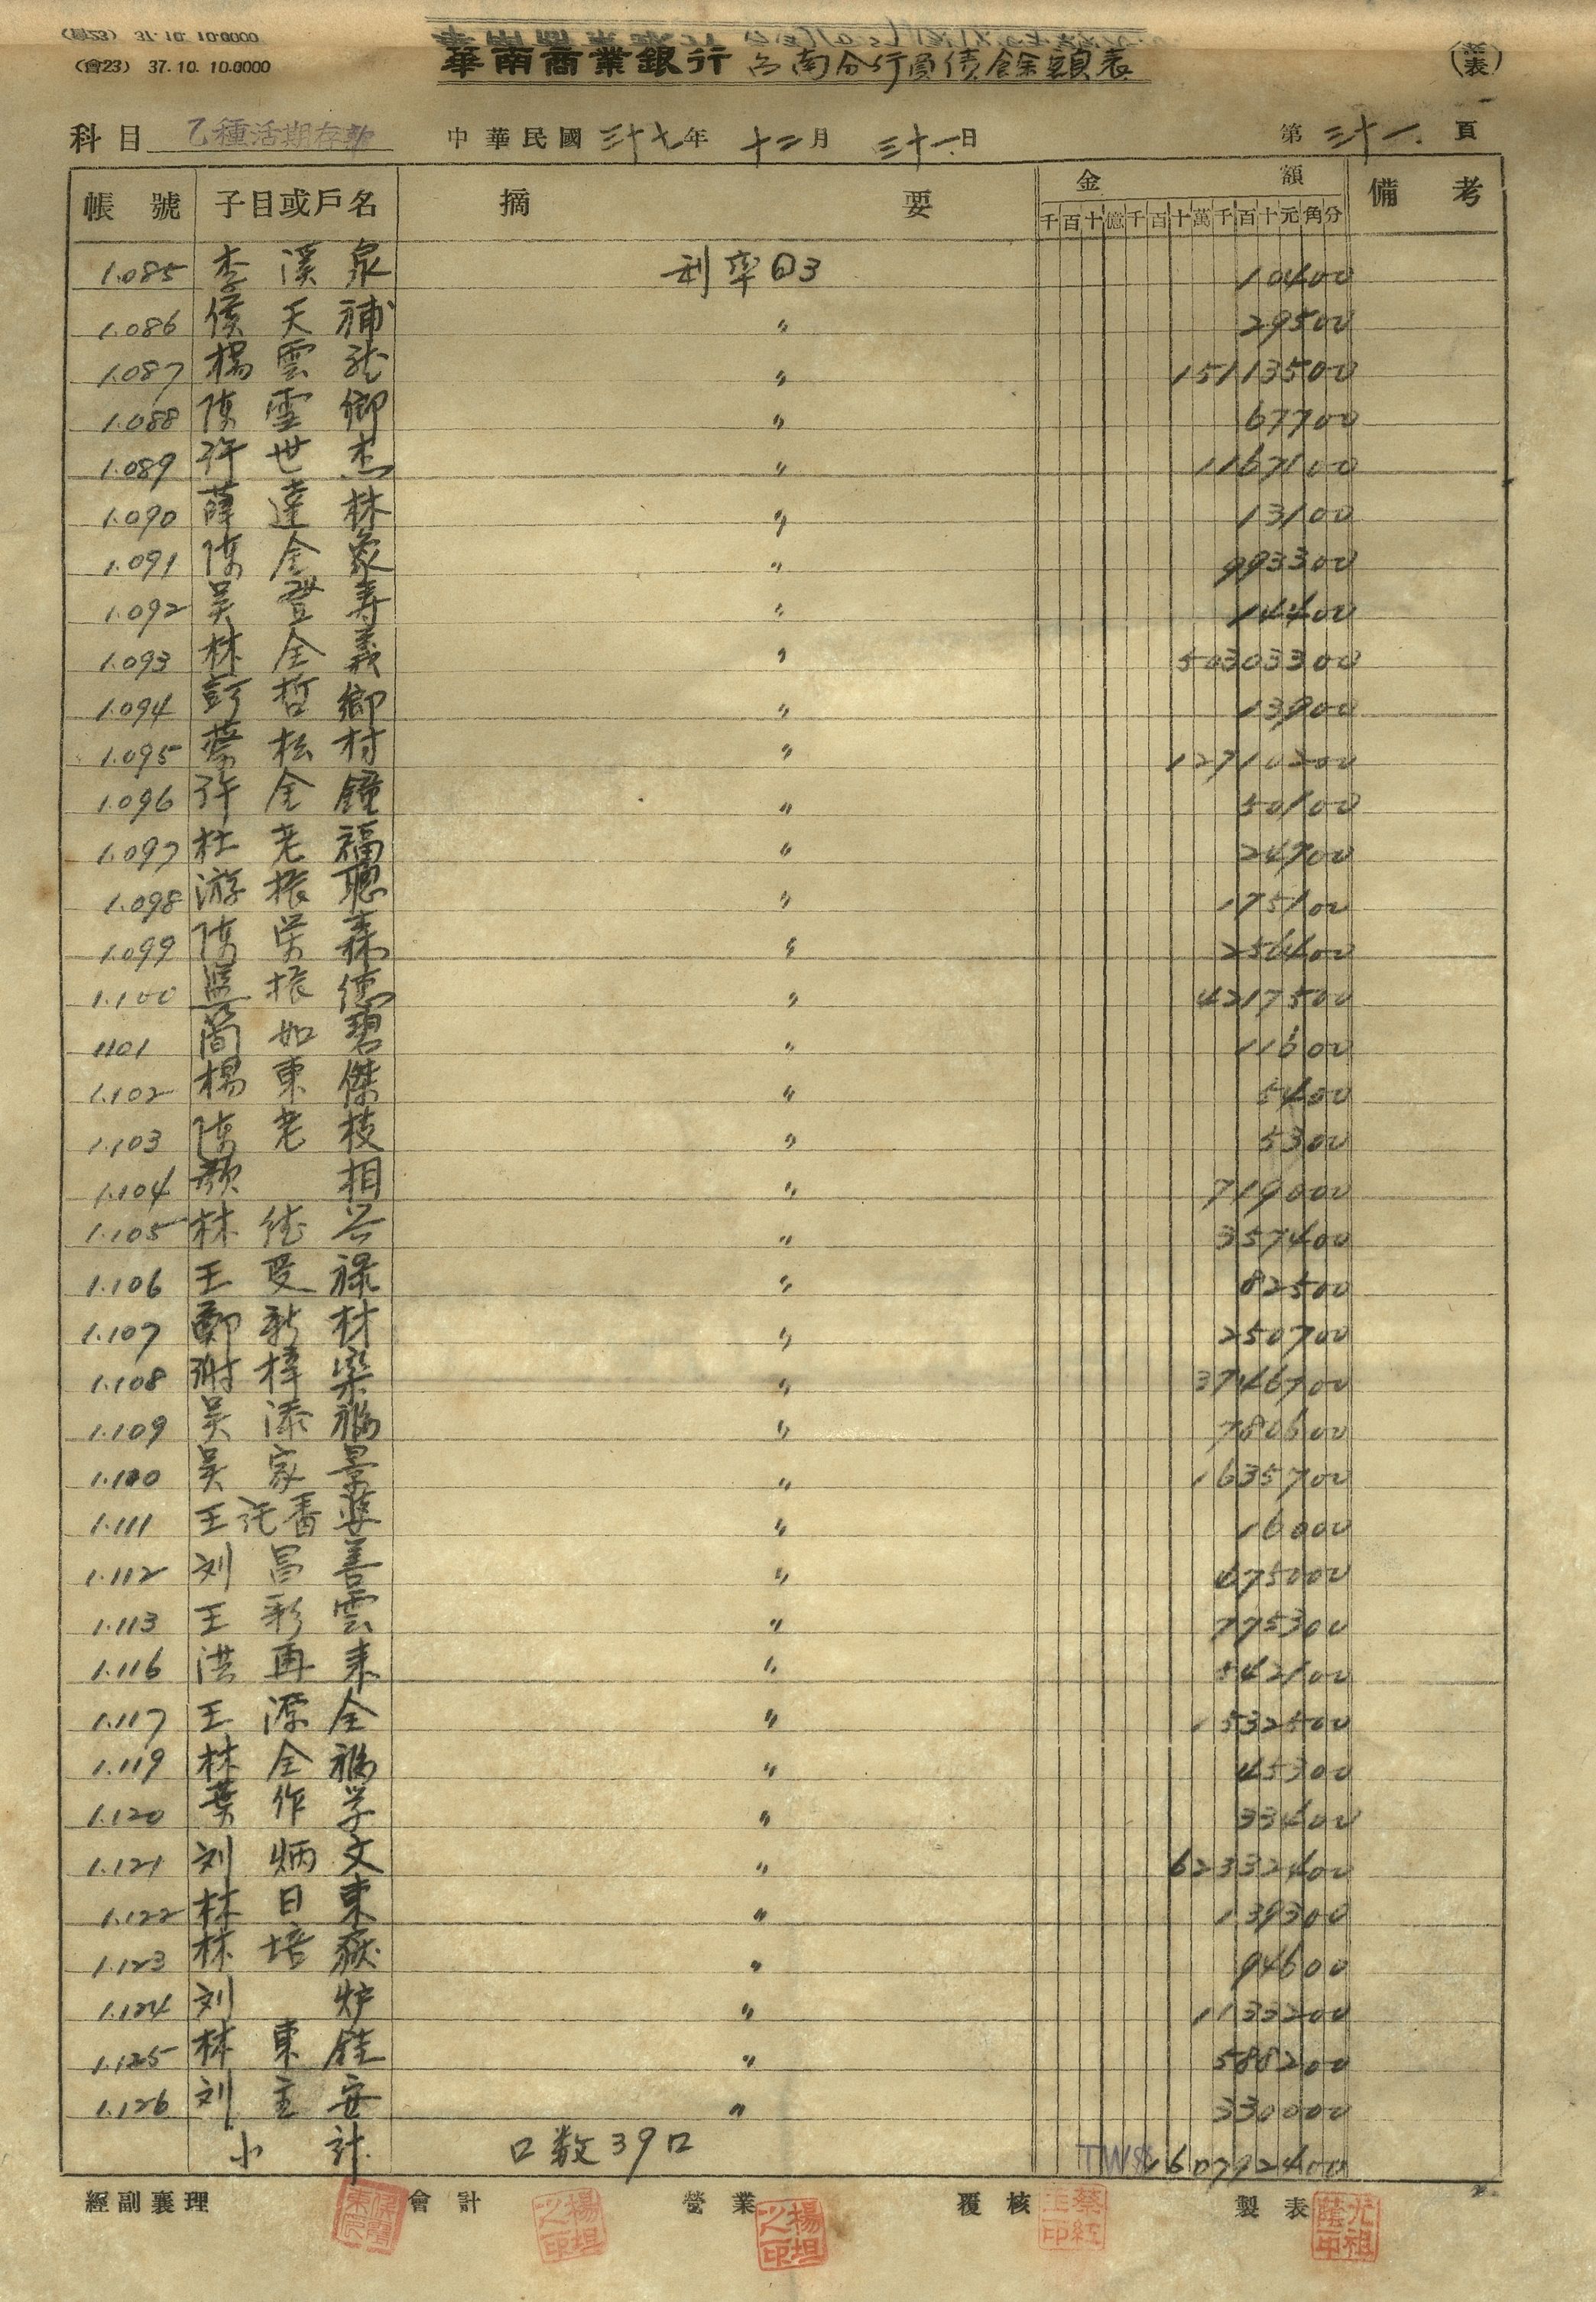 (會23) 31. 10. 10.0000
(會23) 37. 10. 10.0000
華南商業銀行 台南分行負債餘額表
科目 乙種活期存款 中華民國 三十七年 十二月 三十一日 第 三十一 頁
帳號 子目或戶名 摘要 金額 備考
千百十億千百十萬千百十元角分
1.085 李溪泉 利率日3 10400
1.086 侯天補 〃 29500
1.087 楊雲龍 〃 15113500
1.088 陳雲卿 〃 67700
1.089 許世杰 〃 1167100
1.090 薛達林 〃 13100
1.091 陳全象 〃 993300
1.092 吳登寿 〃 14400
1.093 林全義 〃 50303300
1.094 彭哲鄉 〃 13900
1.095 蔡松村 〃 12710200
1.096 許全鐘 〃 50100
1.097 杜老福 〃 24900
1.098 游振聰 〃 175100
1.099 陳榮森 〃 256400
1.100 吳振德 〃 4217500
1101 簡如碧 〃 11600
1.102 楊東傑 〃 5400
1.103 陳老枝 〃 5300
1.104 顏相 〃 719000
1.105 林德兴 〃 357400
1.106 王受祿 〃 82500
1.107 鄭新材 〃 250700
1.108 謝樟梁 〃 3746700
1.109 吳添福 〃 780600
1.110 吳家景 〃 1635700
1.111 王沈香婆 〃 16000
1.112 刘昌善 〃 675000
1.113 王彩雲 〃 775300
1.116 洪再来 〃 542100
1.117 王源全 〃 1532500
1.119 林全福 〃 45300
1.120 葉作学 〃 33400
1.121 刘炳文 〃 62332400
1.122 林日東 〃 139300
1.123 林培嶽 〃 94600
1.124 刘炉 〃 1133200
1.125 林東銓 〃 588200
1.126 刘主安 〃 330000
小計 口数39口 TW$ 160792400
經副襄理 會計 營業 覆核 製表
楊坦之印
楊坦之印